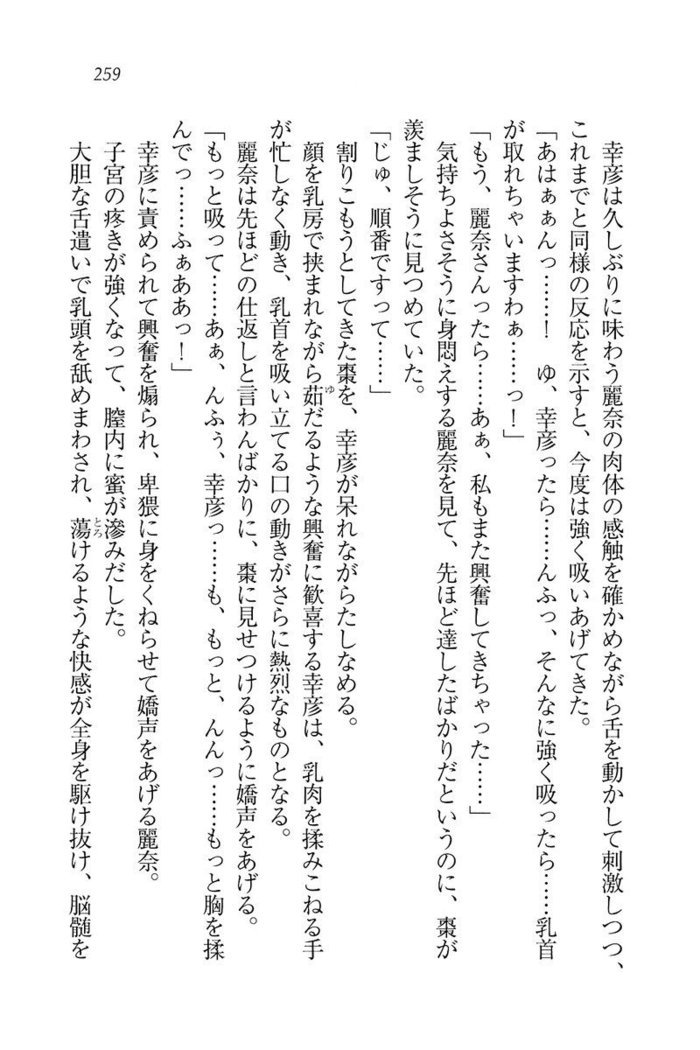 259
幸彦は久しぶりに味わう麗奈の肉体の感触を確かめながら舌を動かして刺激しつつ、
これまでと同様の反応を示すと、今度は強く吸いあげてきた。
「あはぁぁんっ……！　ゆ、幸彦ったら……んふっ、そんなに強く吸ったら……乳首
が取れちゃいますわぁ……っ！」
「もう、麗奈さんったら……あぁ、私もまた興奮してきちゃった……」
気持ちよさそうに身悶えする麗奈を見て、先ほど達したばかりだというのに、棗が
羨ましそうに見つめていた。
「じゅ、順番ですって……」
割りこもうとしてきた棗を、幸彦が呆れながらたしなめる。
顔を乳房で挟まれながら茹ゆだるような興奮に歓喜する幸彦は、乳肉を揉みこねる手
が忙しなく動き、乳首を吸い立てる口の動きがさらに熱烈なものとなる。
麗奈は先ほどの仕返しと言わんばかりに、棗に見せつけるように嬌声をあげる。
「もっと吸って……あぁ、んふぅ、幸彦っ……も、もっと、んんっ……もっと胸を揉
んでっ……ふぁああっ！」
幸彦に責められて興奮を煽られ、卑猥に身をくねらせて嬌声をあげる麗奈。
子宮の疼きが強くなって、膣内に蜜が滲みだした。
大胆な舌遣いで乳頭を舐めまわされ、蕩とろけるような快感が全身を駆け抜け、脳髄を